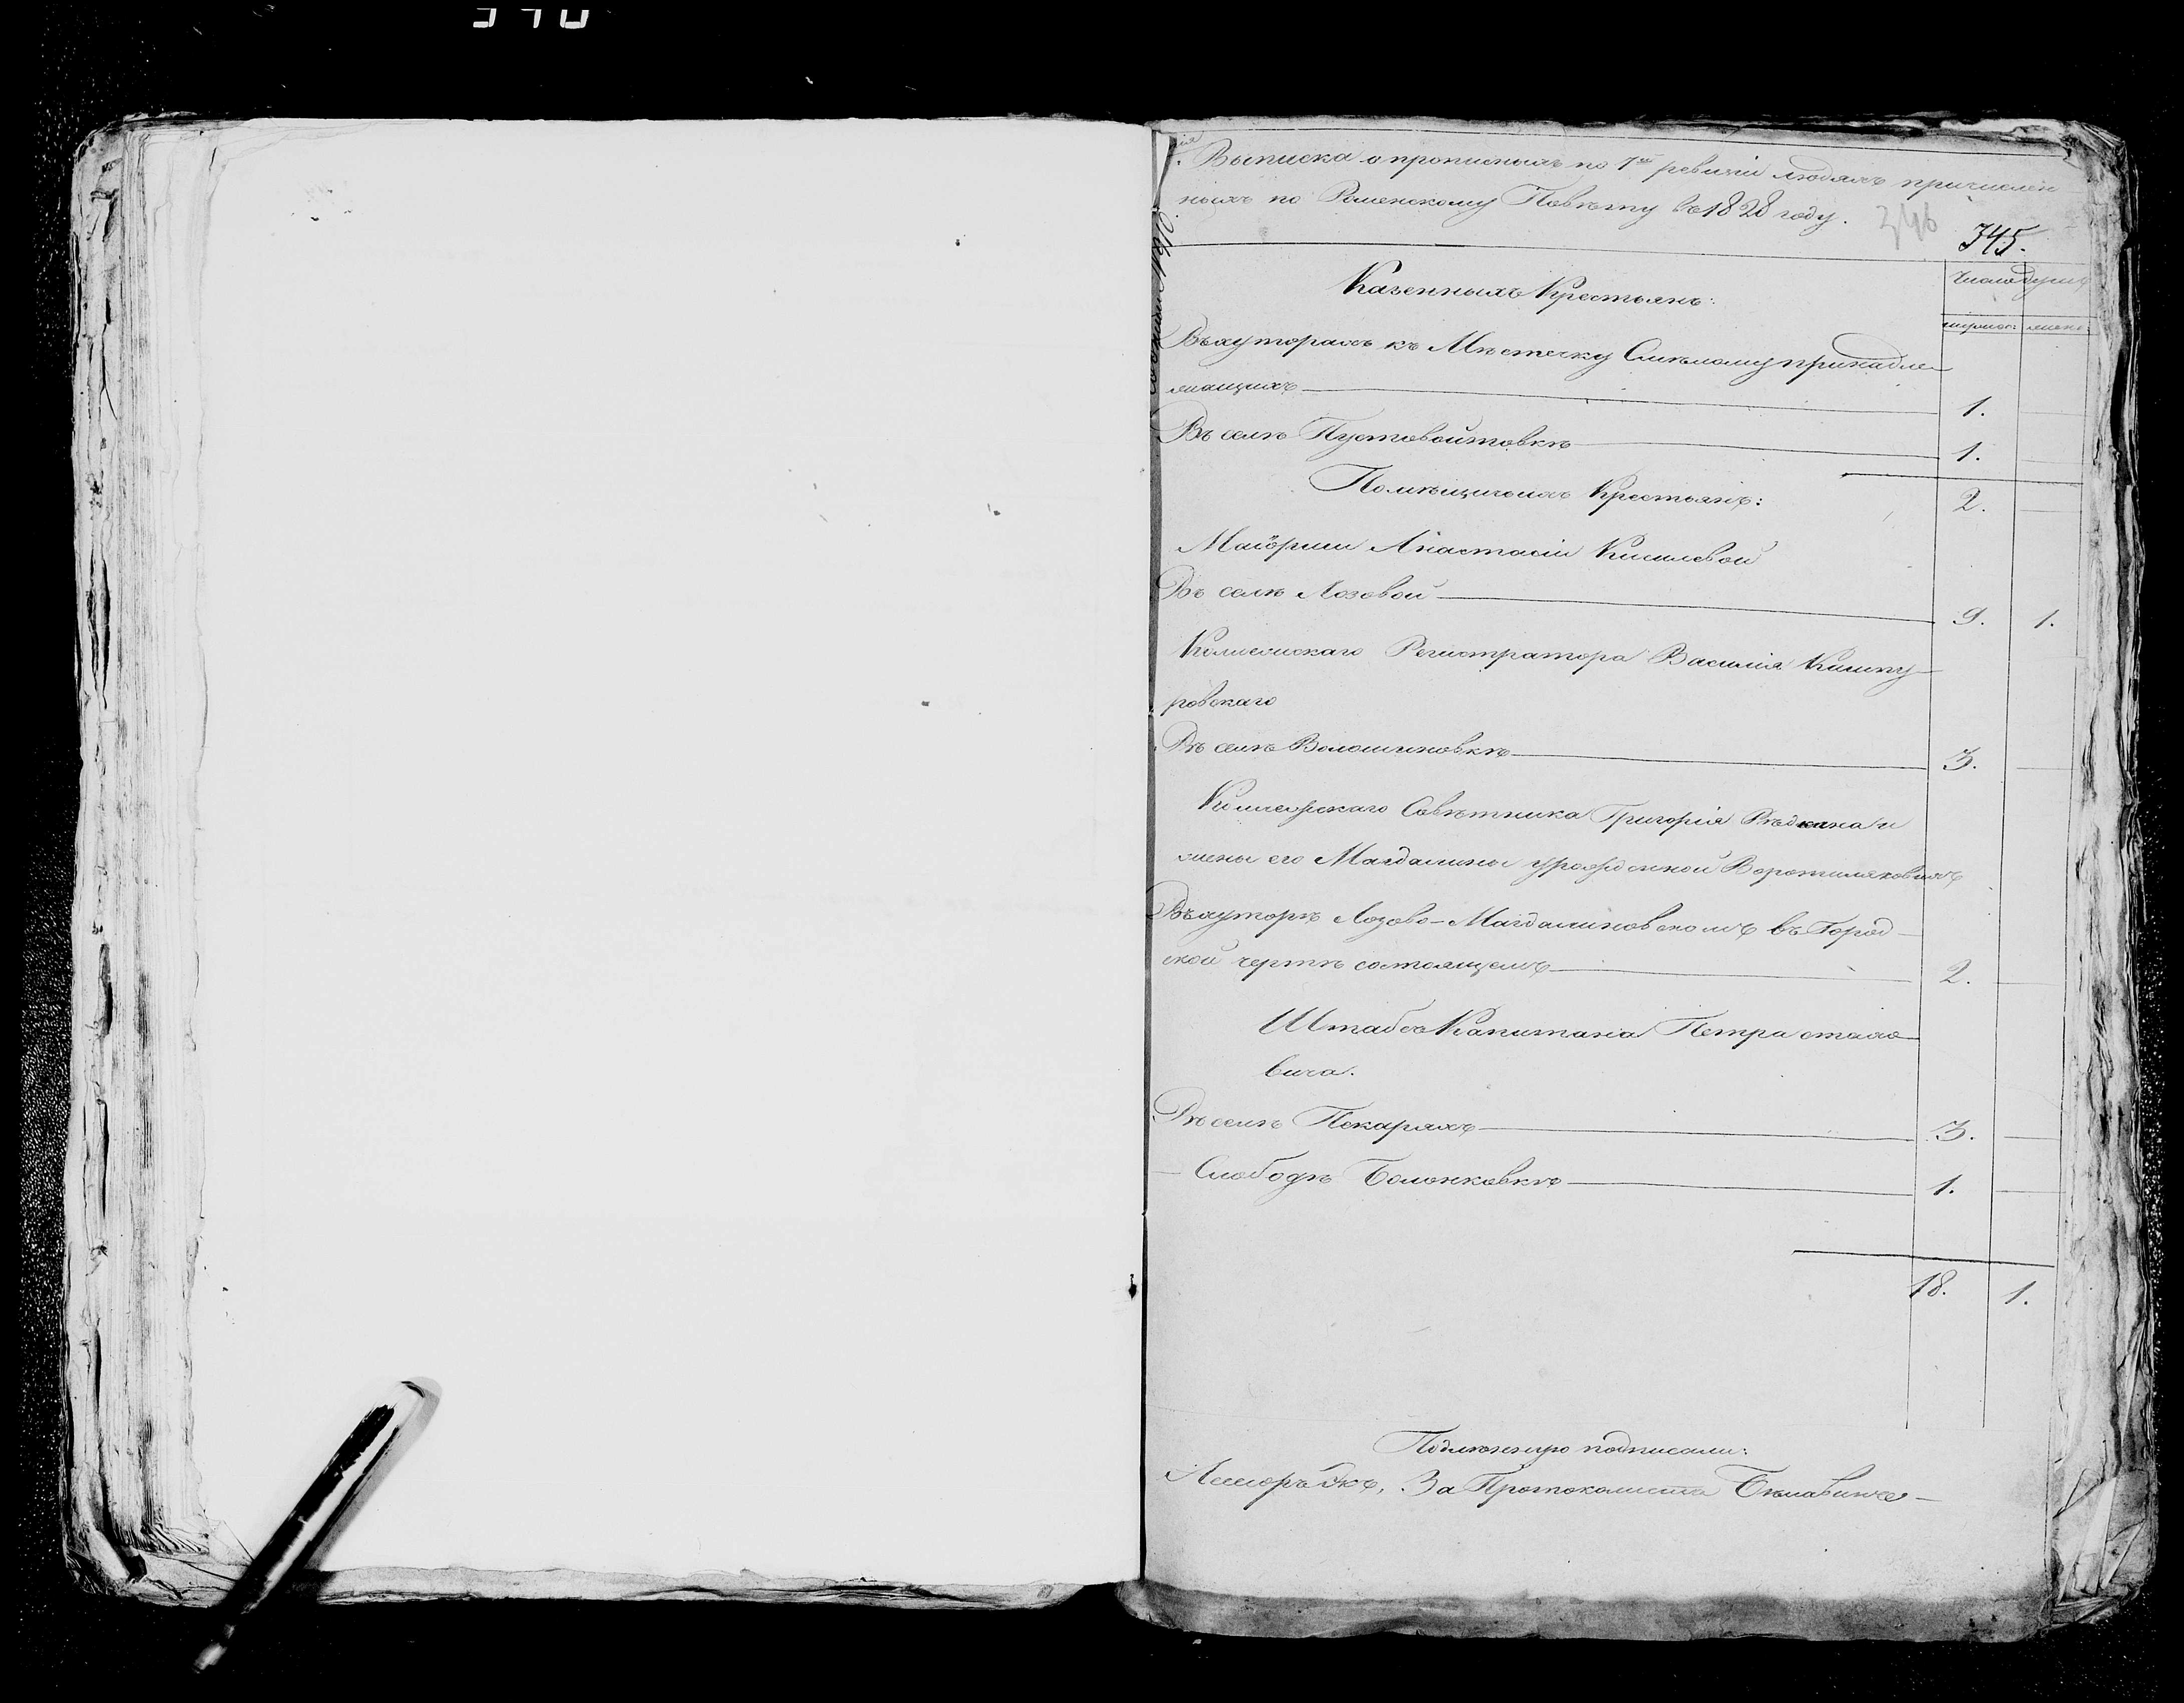 Выписка о прописныхъ по 7й ревизіи людяхъ причислен
ныхъ по Роменскому Повѣту въ 1828 году.
346
345.
Казенныхъ Крестьянъ:
Число душъ
мужес: женс:
Въ хуторахъ къ Мѣстечку Смѣлому принадле
жащихъ — 1. —
Въ селѣ Пустовойтовкѣ — 1. —
2. —
Помѣщичьихъ Крестьянъ:
Маіорши Анастасіи Киселевой
Въ селѣ Лозовой — 9. 1.
Коллежскаго Регистратора Василія
ровскаго
Въ селѣ Волошиновкѣ — 3. —
Коллежскаго Совѣтника Григорія и
жены его Магдалины урожденной
Въ хуторѣ Лозово-Магдалиновскомъ въ Город-
ской чертѣ состоящемъ — 2. —
Штабсъ Капитана Петра
вича.
Въ селѣ Пекаряхъ — 3. —
— Слободѣ — 1. —
18. 1.
Подлинную подписали:
За Протоколиста